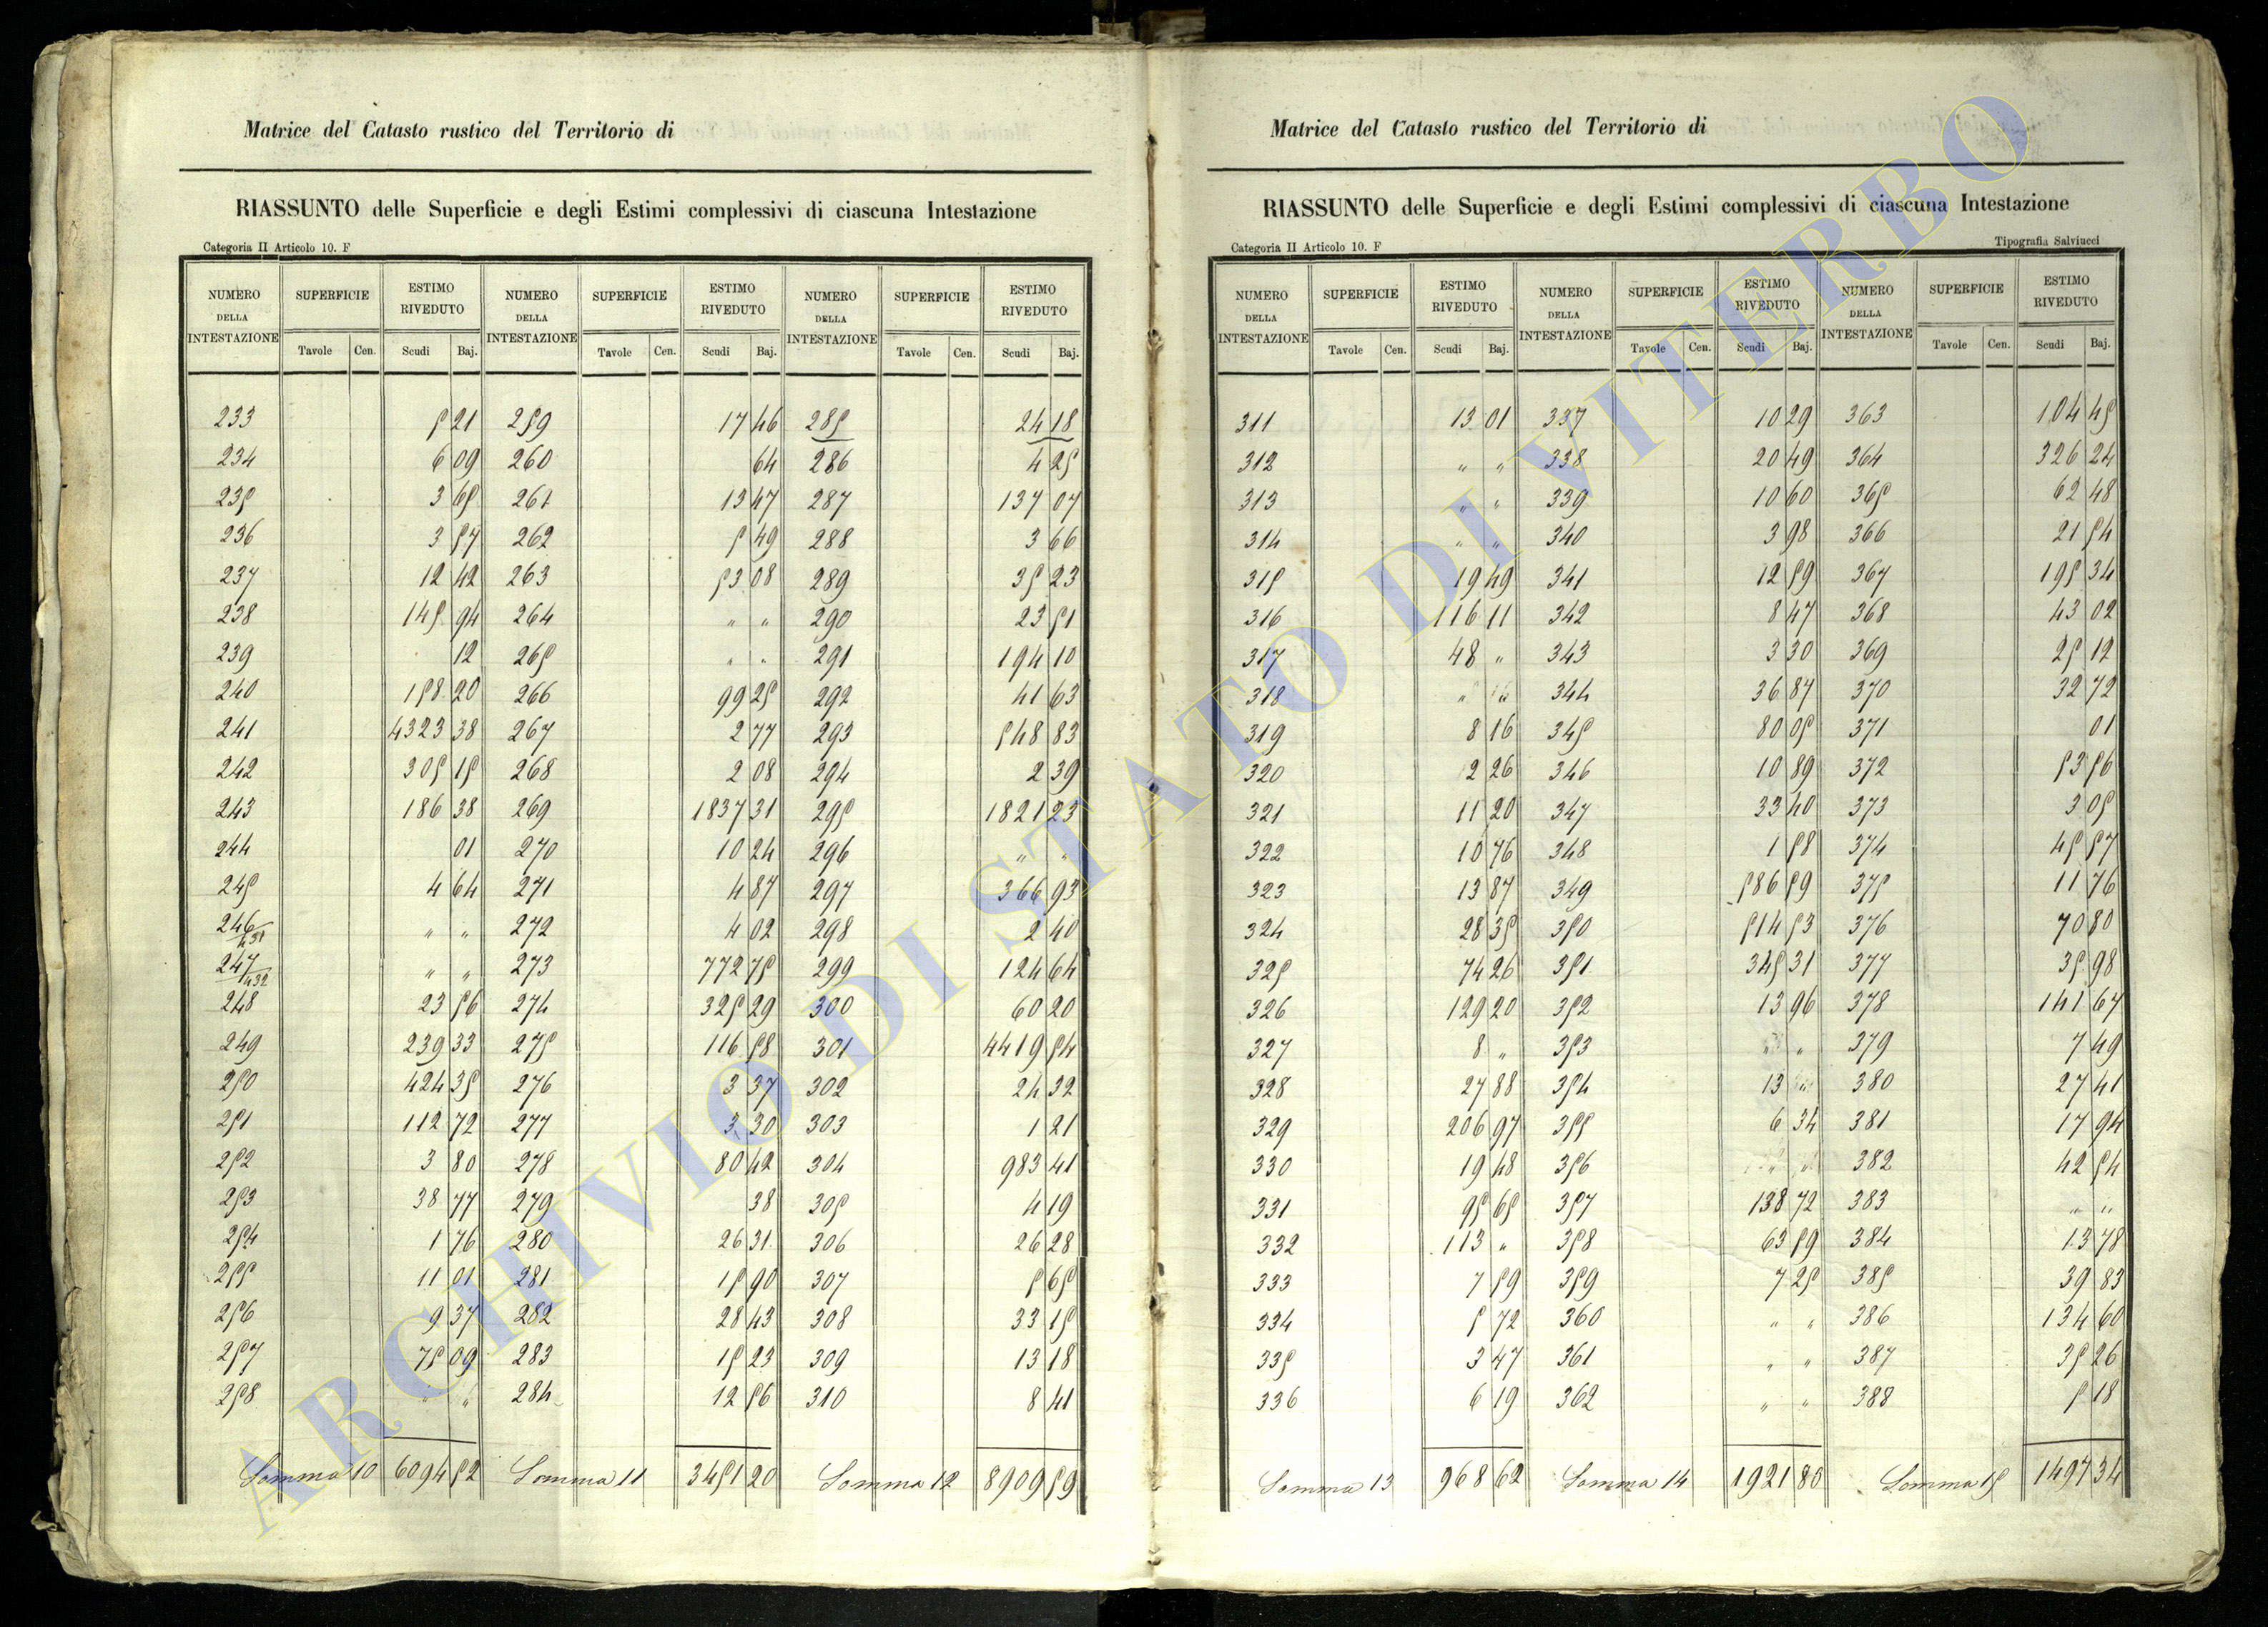 Matrice del Catasto rustico del Territorio di
RIASSUNTO delle Superficie e degli Estimi complessivi di ciascuna Intestazione
Categoria II Articolo 10. F
NUMERO DELLA INTESTAZIONE SUPERFICIE ESTIMO RIVEDUTO NUMERO DELLA INTESTAZIONE SUPERFICIE ESTIMO RIVEDUTO NUMERO DELLA INTESTAZIONE SUPERFICIE ESTIMO RIVEDUTO
Tavole Cen. Scudi Baj. Tavole Cen. Scudi Baj. Tavole Cen. Scudi Baj.
233 5 21 259 17 46 285 24 18
234 6 09 260 64 286 4 25
235 3 65 261 13 47 287 137 07
236 3 57 262 5 49 288 3 66
237 12 42 263 53 08 289 35 23
238 145 94 264 " " 290 23 51
239 12 265 " " 291 194 10
240 158 20 266 99 25 292 41 63
241 4323 38 267 2 77 293 548 83
242 305 15 268 2 08 294 2 39
243 186 38 269 1837 31 295 1821 23
244 01 270 10 24 296 " "
245 4 64 271 4 87 297 366 93
246/431 " " 272 4 02 298 2 40
247/432 " " 273 772 75 299 124 64
248 23 56 274 325 29 300 60 20
249 239 33 275 116 58 301 4419 54
250 424 35 276 3 37 302 24 32
251 112 72 277 3 30 303 1 21
252 3 80 278 80 42 304 983 41
253 38 77 279 38 305 4 19
254 1 76 280 26 31 306 26 28
255 11 01 281 15 90 307 5 65
256 9 37 282 28 43 308 33 15
257 75 09 283 15 23 309 13 18
258 " " 284 12 56 310 8 41
Somma 10 6094 52 Somma 11 3451 20 Somma 12 8909 59
Matrice del Catasto rustico del Territorio di
RIASSUNTO delle Superficie e degli Estimi complessivi di ciascuna Intestazione
Categoria II Articolo 10. F Tipografia Salviucci
NUMERO DELLA INTESTAZIONE SUPERFICIE ESTIMO RIVEDUTO NUMERO DELLA INTESTAZIONE SUPERFICIE ESTIMO RIVEDUTO NUMERO DELLA INTESTAZIONE SUPERFICIE ESTIMO RIVEDUTO
Tavole Cen. Scudi Baj. Tavole Cen. Scudi Baj. Tavole Cen. Scudi Baj.
311 13 01 337 10 29 363 104 45
312 " " 338 20 49 364 326 24
313 " " 339 10 60 365 62 48
314 " " 340 3 98 366 21 54
315 19 49 341 12 59 367 195 34
316 116 11 342 8 47 368 43 02
317 48 " 343 3 30 369 25 12
318 " 344 36 87 370 32 72
319 8 16 345 80 05 371 01
320 2 26 346 10 89 372 53 56
321 11 20 347 33 40 373 3 05
322 10 76 348 1 58 374 45 57
323 13 87 349 586 59 375 11 76
324 28 35 350 514 53 376 70 80
325 74 26 351 345 31 377 35 98
326 129 20 352 13 96 378 141 67
327 8 " 353 " " 379 7 49
328 27 88 354 13 " 380 27 41
329 206 97 355 6 34 381 17 94
330 19 48 356 " " 382 42 54
331 95 65 357 138 72 383 " "
332 113 " 358 63 59 384 13 78
333 7 59 359 7 25 385 39 83
334 5 72 360 " " 386 134 60
335 3 47 361 " " 387 35 26
336 6 19 362 " " 388 5 18
Somma 13 968 62 Somma 14 1921 80 Somma 15 1497 34
ARCHIVIO DI STATO DI VITERBO